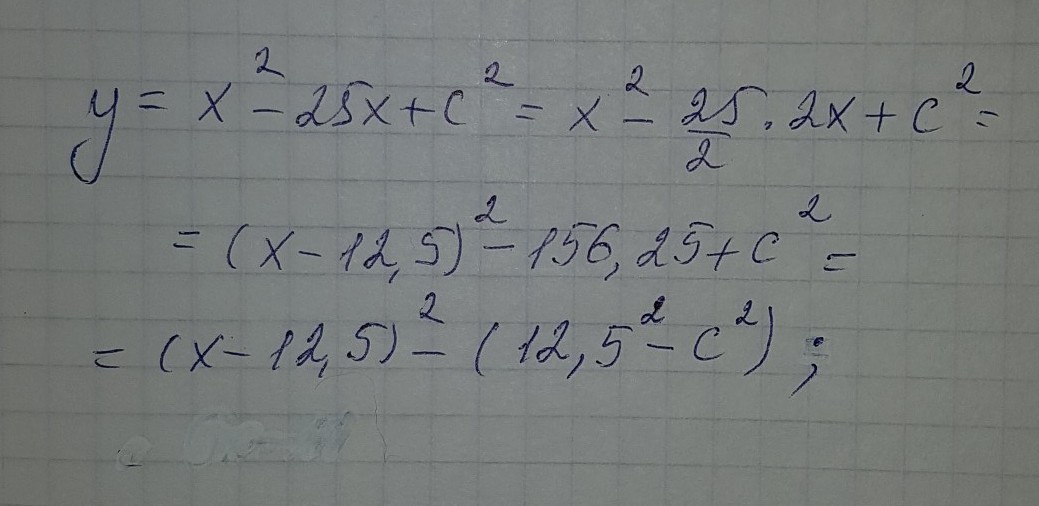 y = x² - 25x + c² = x² - 25/2 · 2x + c² =
= (x - 12,5)² - 156,25 + c² =
= (x - 12,5)² - (12,5² - c²) ;